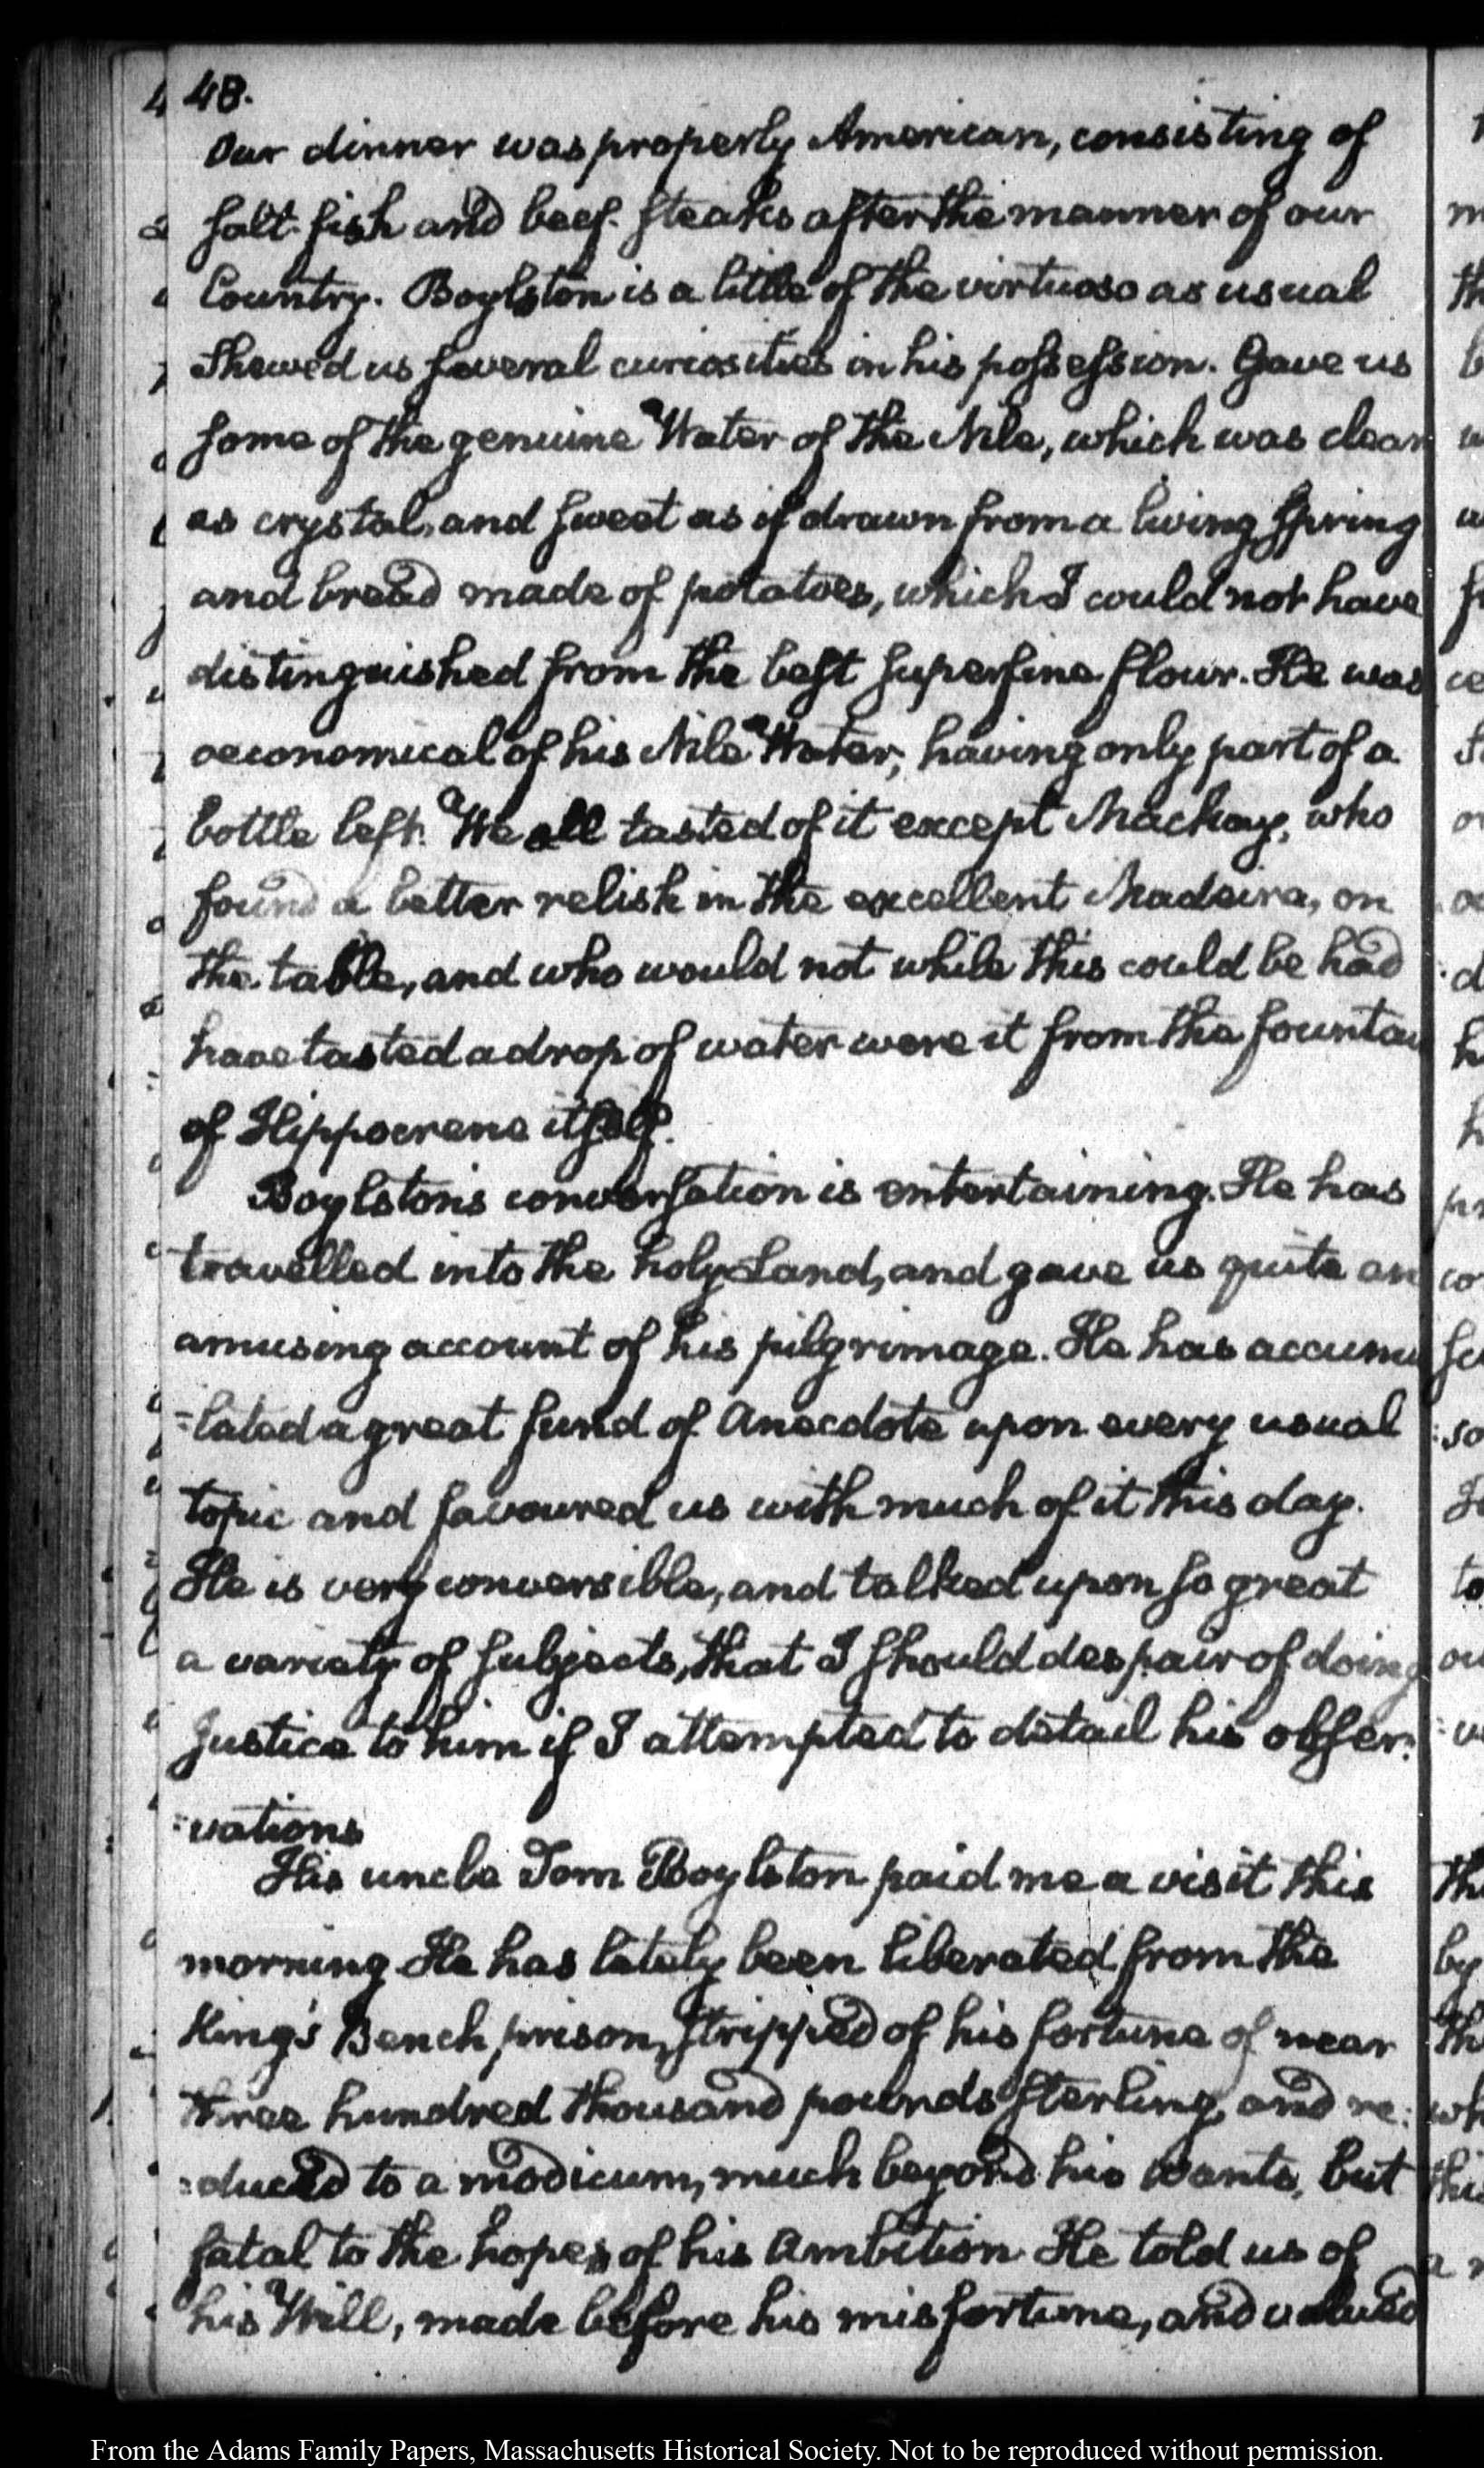 48.
Our dinner was properly American, consisting of
salt fish and beef steaks after the manner of our
Country. Boylston is a little of the virtuoso as usual
Shewed us several curiosities in his possession. Gave us
some of the genuine Water of the Nile, which was clear
as crystal, and sweet as if drawn from a living spring
and bread made of potatoes, which I could not have
distinguished from the best superfine flour. He was
oeconomical of his Nile Water, having only part of a
bottle left. We all tasted of it except Mackay, who
found a better relish in the excellent Madeira, on
the table, and who would not while this could be had
have tasted a drop of water were it from the fountai
of Hippocrene itself.
Boylston's conversation is entertaining. He has
travelled into the holy Land, and gave us quite an
amusing account of his pilgrimage. He has accumu
=lated a great fund of Anecdote upon every usual
topic and favoured us with much of it this day.
He is very conversible, and talked upon so great
a variety of subjects, that I should despair of doing
Justice to him if I attempted to detail his obser:
=vations
His uncle Tom Boylston paid me a visit this
morning He has lately been liberated from the
King's Bench prison, stripped of his fortune of near
three hundred thousand pounds sterling, and re:
=duced to a modicum, much beyond his wants, but
fatal to the hopes of his Ambition He told us of
his Will, made before his misfortune, and valued
From the Adams Family Papers, Massachusetts Historical Society. Not to be reproduced without permission.